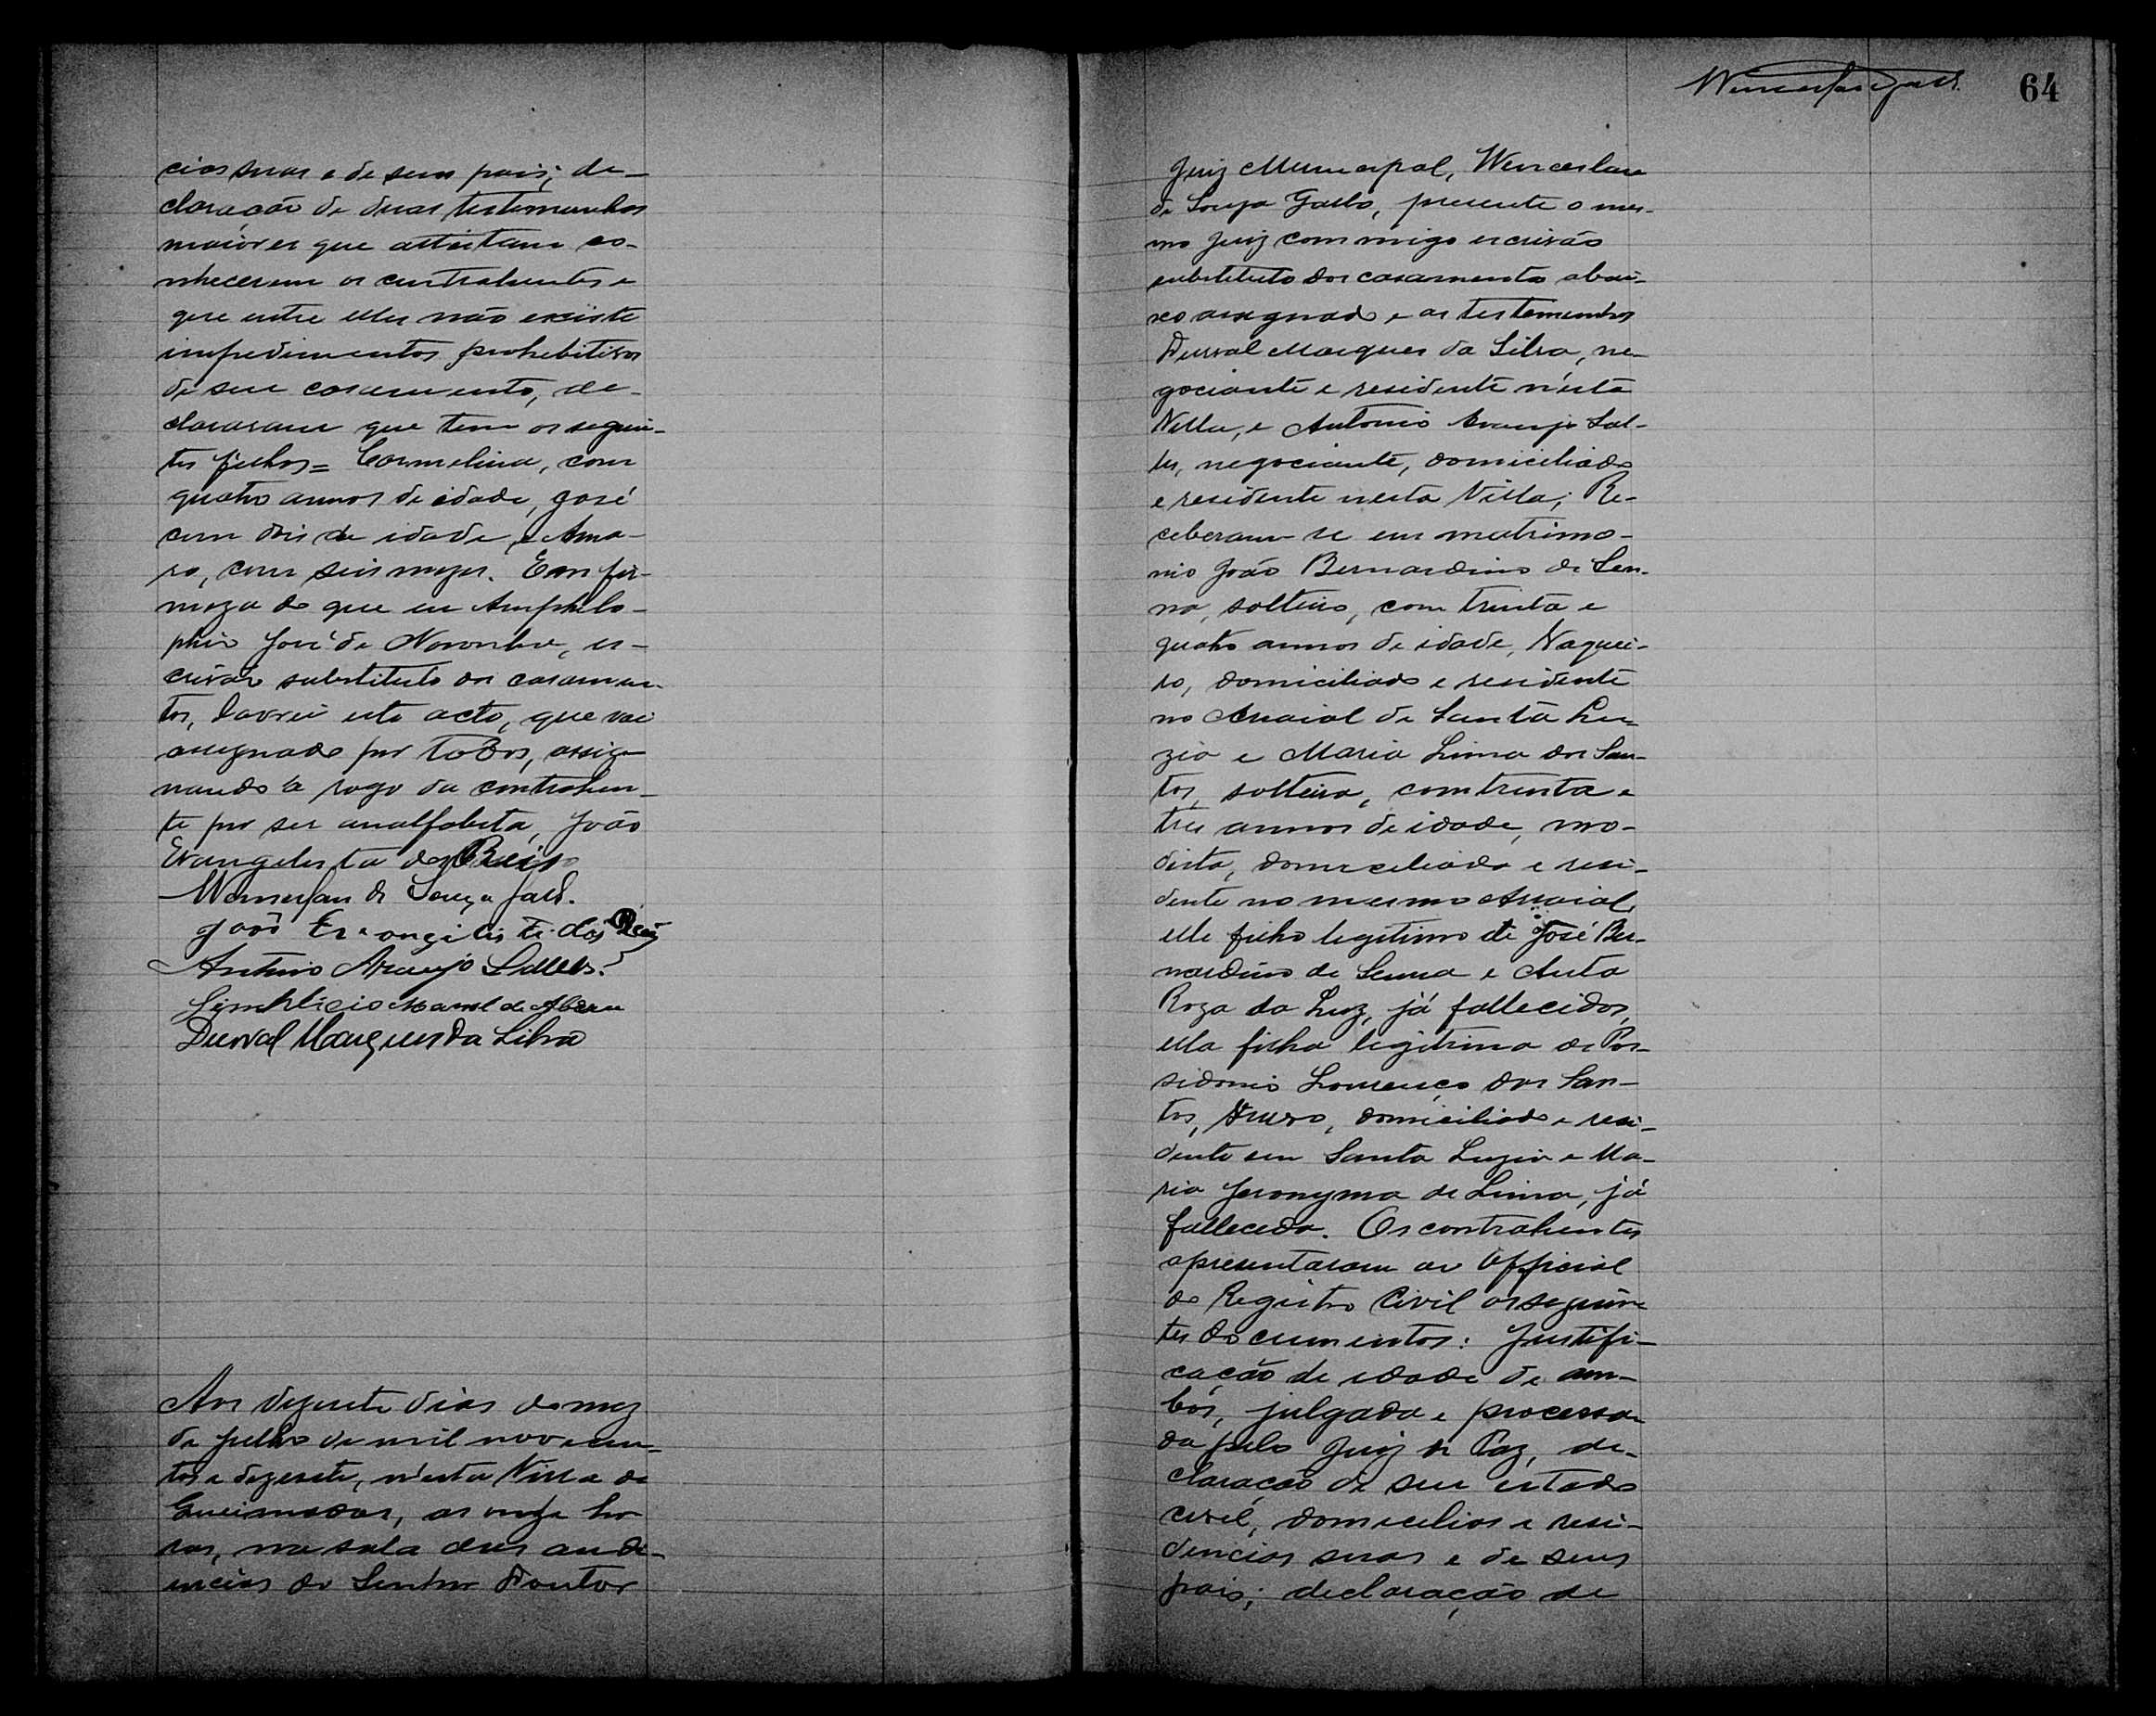 cias suas e de seus pais; de-
claração de duas testemunhas
maiores que attestam co-
nhecerem os contrahentes e
que entre elles não existe
impedimentos prohibitivos
de seu casamento, de-
clararam que tem os seguin-
tes filhos = Carmelina, com
quatro annos de idade, José
com dois de idade e Ama-
ro, com seis mezes. E em fir-
meza do que eu Amphilo-
phio José de Noronha, es-
crivão substituto dos casamen-
tos, lavrei este acto, que vai
assignado por todos, assig-
nando a rogo da contrahen-
te por ser analfabeta, João
Evangelista dos Reis
Wenceslau de Souza Gallo.
João Evangelista dos Reis
Antonio Araujo Salles.
Simplicio Manoel de Abreu
Durval Marques da Silva
Aos dezesete dias do mez
de Julho de mil novecen-
tos e dezesete, n'esta Villa de
Queimadas, as onze ho-
ras, na sala das audi-
encias do Senhor Doutor
64
Juiz Municipal, Wenceslau
de Souza Gallo, presente o mes-
mo Juiz commigo escrivão
substituto dos casamentos abai-
xo assignado e as testemunhas
Durval Marques da Silva, ne-
gociante e residente n'esta
Villa, e Antonio Araujo Sal-
les, negociante, domiciliado
e residente nesta Villa; Re-
ceberam-se em matrimo-
nio João Bernardino de Sen-
na, solteiro, com trinta e
quatro annos de idade, Vaquei-
ro, domiciliado e residente
no Arraial de Santa Lu-
zia e Maria Lima dos San-
tos, solteira, com trinta e
tres annos de idade, mo-
dista, domiciliada e resi-
dente no mesmo Arraial,
elle filho legitimo de José Ber-
nardino de Senna e Anta
Roza da Luz, já fallecidos,
ella filha legitima de Pos-
sidonio Lourenço dos San-
tos, viuvo, domiciliado e resi-
dente em Santa Luzia e Ma-
ria Jeronyma de Lima, já
fallecida. Os contrahentes
apresentaram ao Official
do Registro Civil os seguin-
tes documentos: Justifi-
cação de idade de am-
bos, julgada e processa-
da pelo Juiz de Paz, de-
claração de seu estado
civil, domicilios e resi-
dencias suas e de seus
pais; declaração de